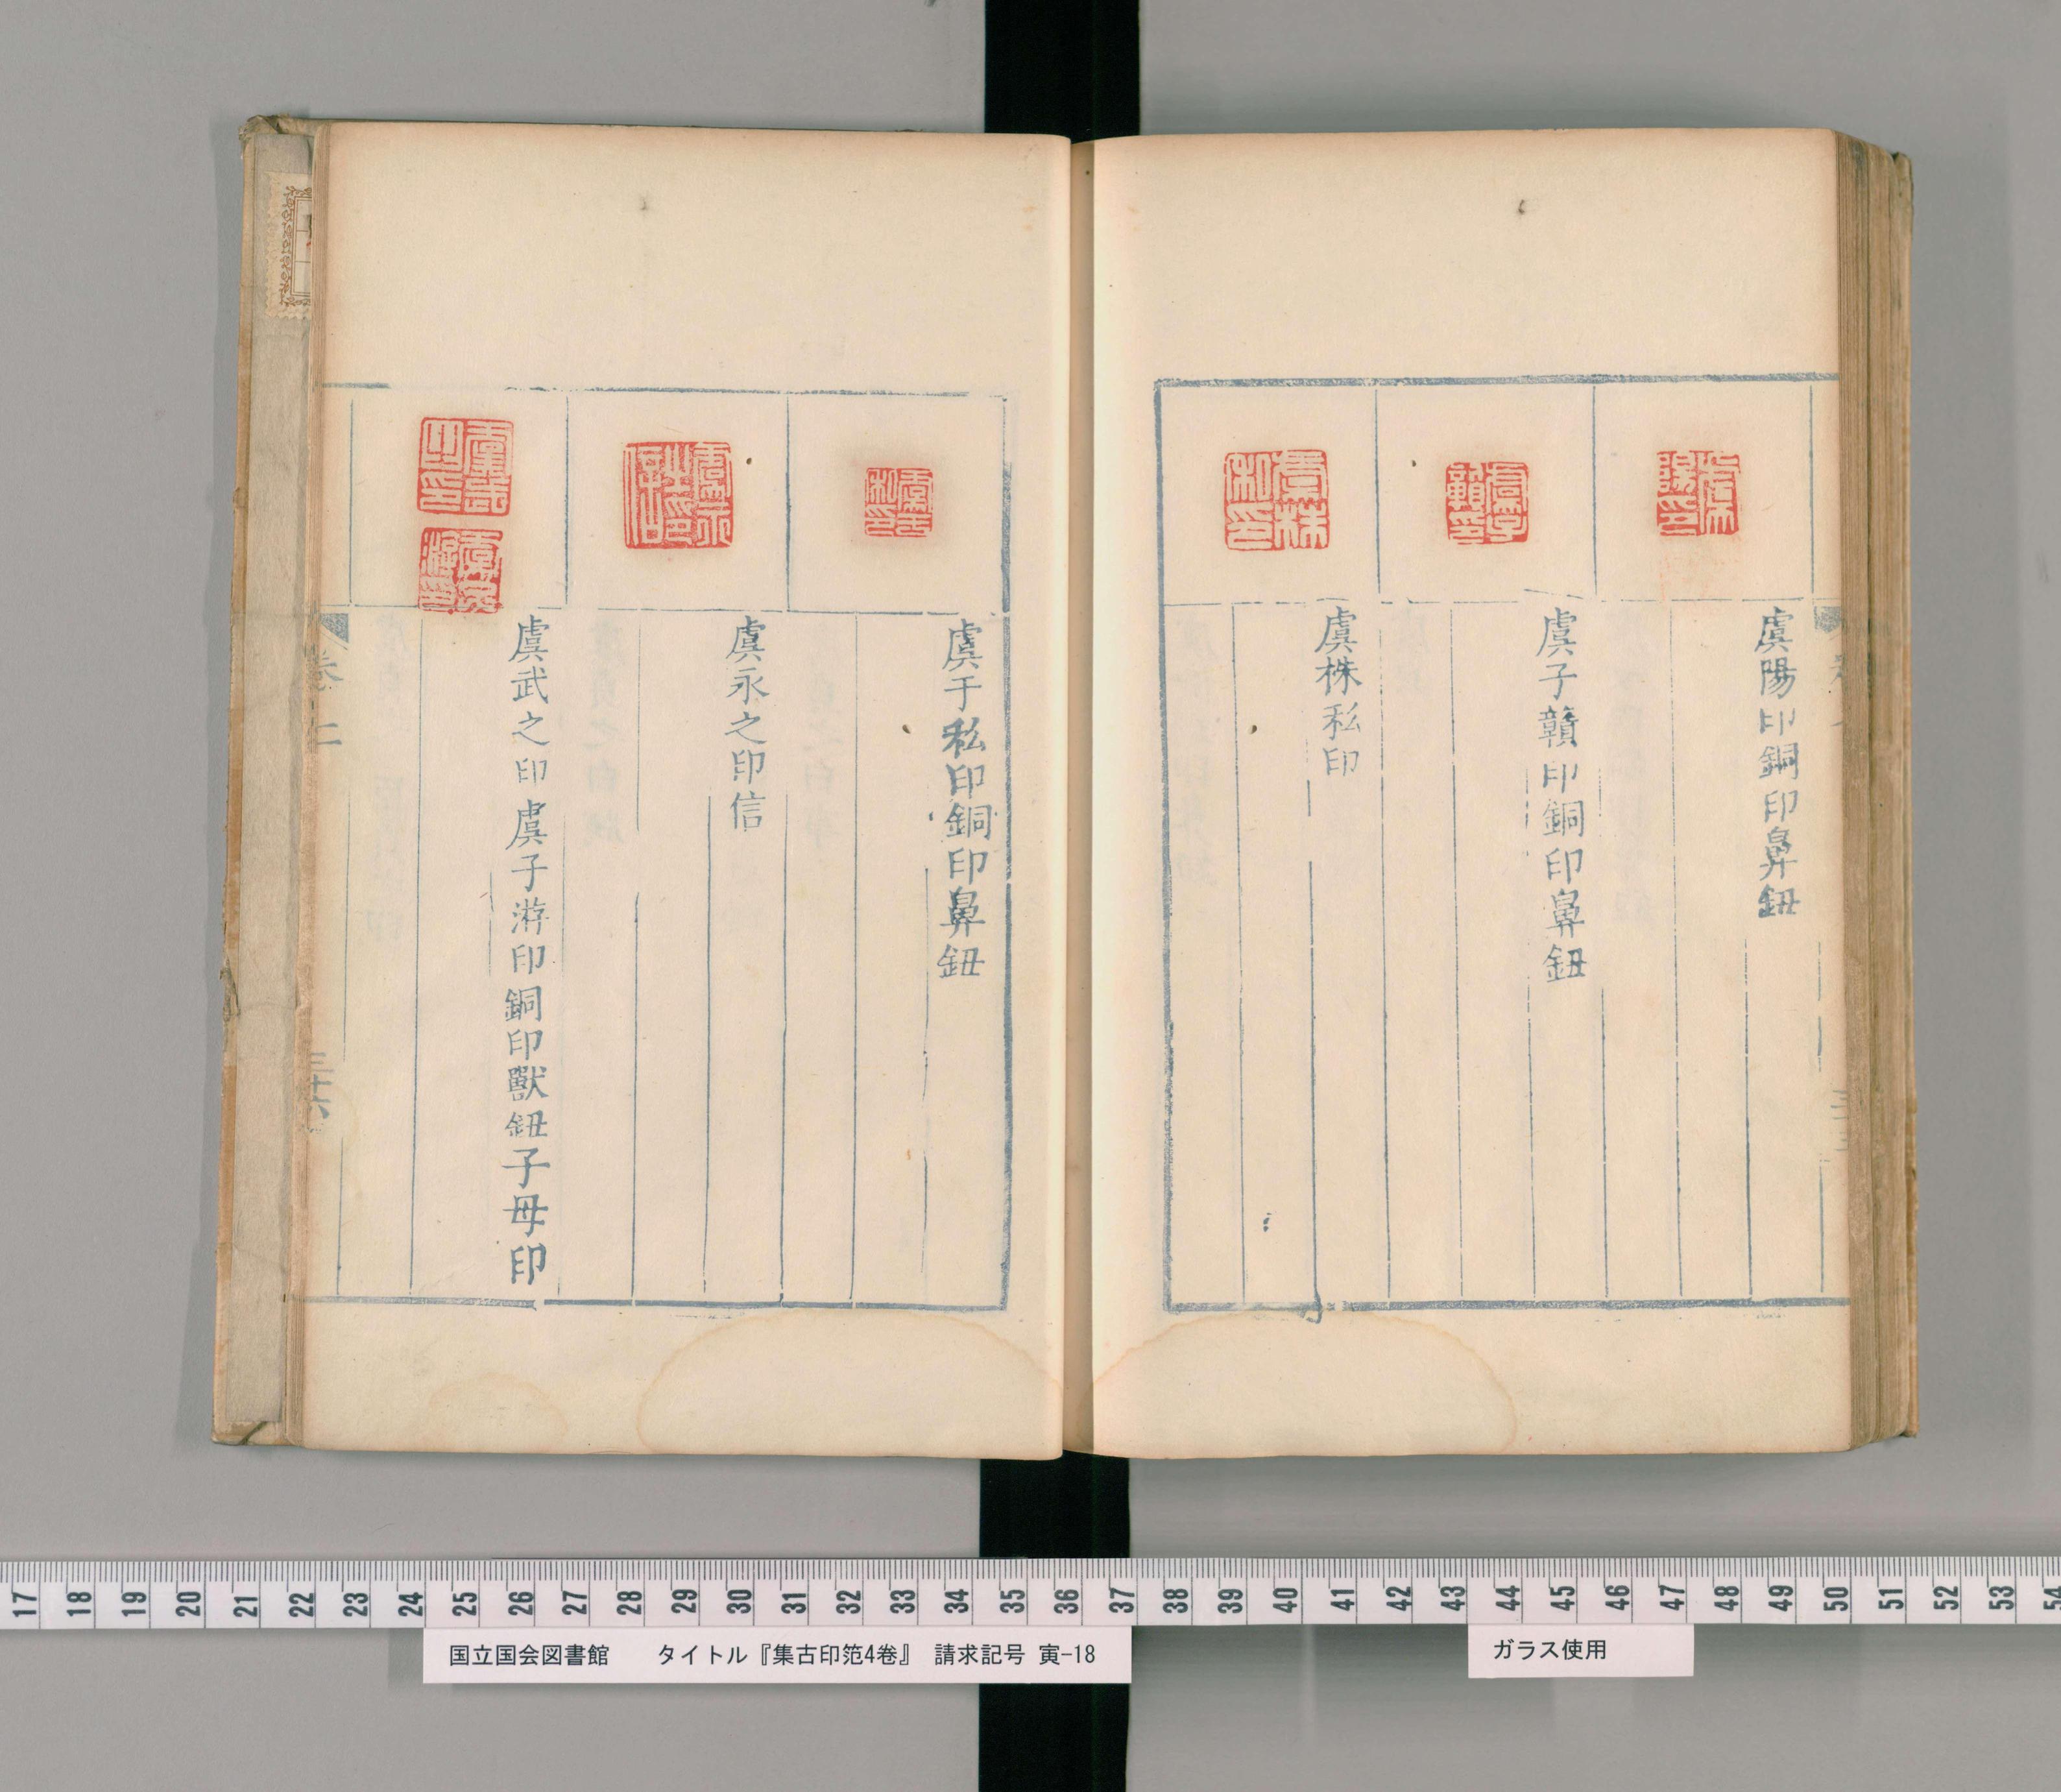 虞陽印銅印鼻鈕
虞子贛印銅印鼻鈕
虞株私印
虞于私印銅印鼻鈕
虞永之印信
虞武之印虞子游印銅印獸鈕子母印
三十六
17 18 19 20 21 22 23 24 25 26 27 28 29 30 31 32 33 34 35 36 37 38 39 40 41 42 43 44 45 46 47 48 49 50 51 52 53 54
国立国会図書館 タイトル『集古印笵4巻』 請求記号 寅-18
ガラス使用